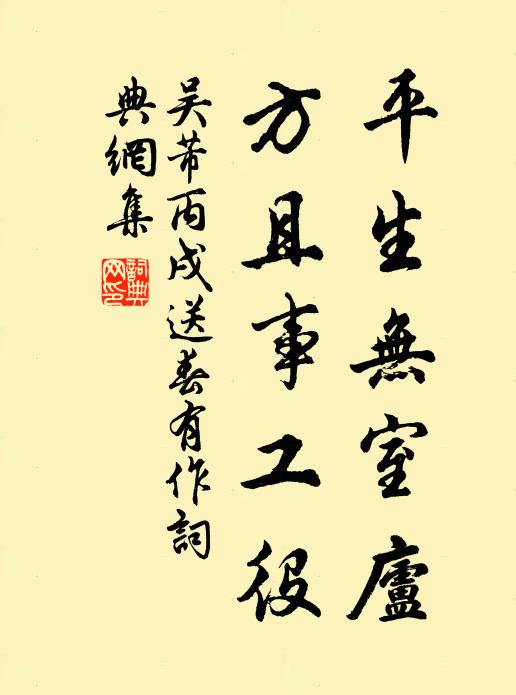 平生無室廬
方且事工役
吳芾丙戌送春有作詞
典網集
詞典網印